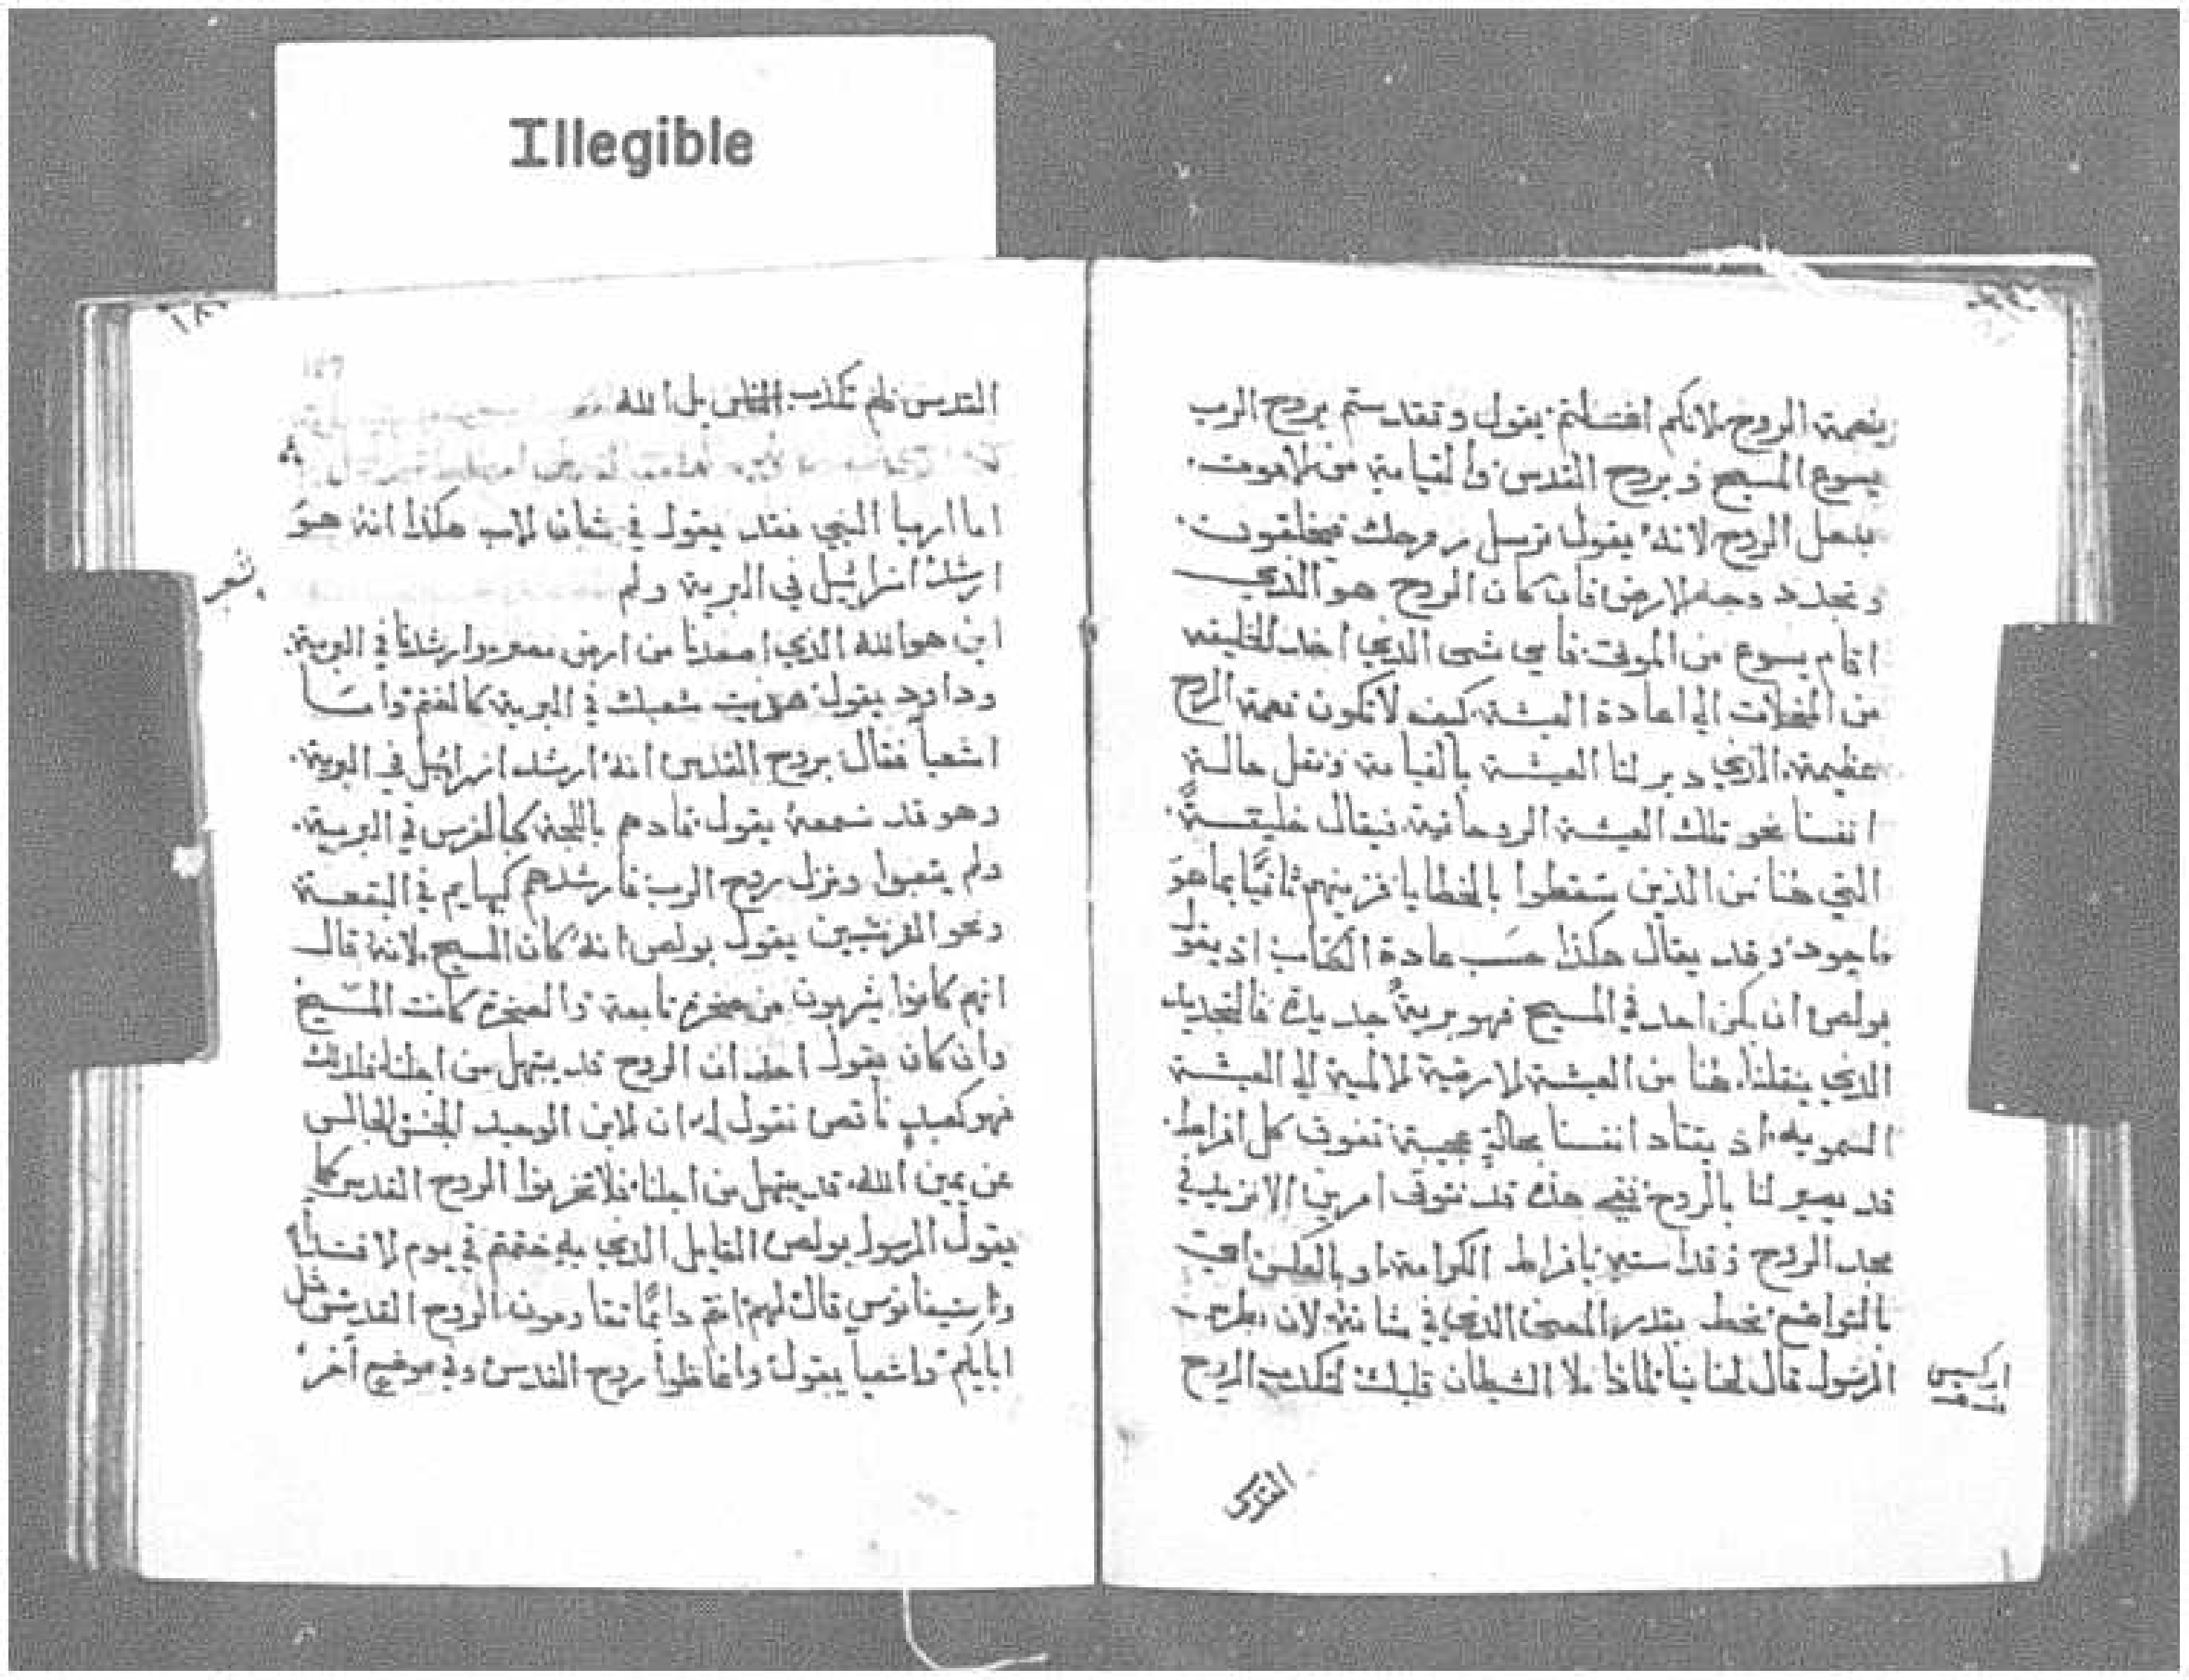 Illegible
بنعمة الروح لانكم اغتسلتم يقول وتقدستم بروح الرب
يسوع المسيح وبروح القدس والقيامة من الاموات
بفعل الروح لانه يقول ترسل روحك فيخلقون
وتجدد وجه الارض فان كان الروح هو الذي
اقام يسوع من الموتى فاي شي الذي اخذ الخليقه
من الى اعادة العيشة كيف لا تكون نعمة الروح
عظيمة الذي دبر لنا العيشة بالقيامة ونقل حالة
انفسنا نحو تلك العيشة الروحانية فيقال خليقة
التي هنا من الذين سقطوا بالخطايا ثانيًا بما هو
ماجود وقد يقال هكذا حسب عادة الكتاب اذ يقول
بولص ان يكن احد في المسيح فهو برية جديدة فالتجديد
الذي ينقلنا هنا من العيشة الارضية الالمية الي العيشة
السمويه اذ يقتاد انفسنا بحالة عجيبة تفوق كل افراط
قد يصير لنا بالروح هذه قد نتوقى امرين الا نزيد في
مجد الروح بافراط الكرامة او بالعكس اعني
بالتواضع نحط بقدر المعنى الذي في شانه لان بطرس
الرسول قال لحنانيا لماذا ملا الشيطان قلبك لتكذب الروح
القدس
القدس فلم تكذب الناس بل الله
اما ارميا النبي فقد يقول في شان الاب هكذا انه هو
ارشد اسرائيل في البرية ولم
اين هو الله الذي اصعدنا من ارض مصر وارشدنا في البرية
وداود يقول هديت شعبك في البرية كالغنم واما
اشعيا فقال بروح القدس انه ارشد اسرائيل في البرية
وهو قد نسمعه يقول قادهم باللجة كالفرس في البرية
ولم يتعبوا ونزل روح الرب فارشدهم كبهايم في البقعة
ونحو القرنتيين يقول بولص انه كان المسيح لانه قال
انهم كانوا يشربون من صخرة تابعة والصخرة كانت المسيح
وان كان يقول احد ان الروح قد يبتهل من اجلنا فلذلك
فهو كعبد ناقص نقول له ان الابن الوحيد الجنس الجالس
عن يمين الله قد يبتهل من اجلنا فلا تحزنوا الروح القدس كما
يقول الرسول بولص القايل الذي به ختمتم في يوم
واستيفانوس قال لهم انتم دائمًا تقاومون الروح القدس مثل
ابايكم واشعيا يقول واغاظوا روح القدس وفي موضع آخر